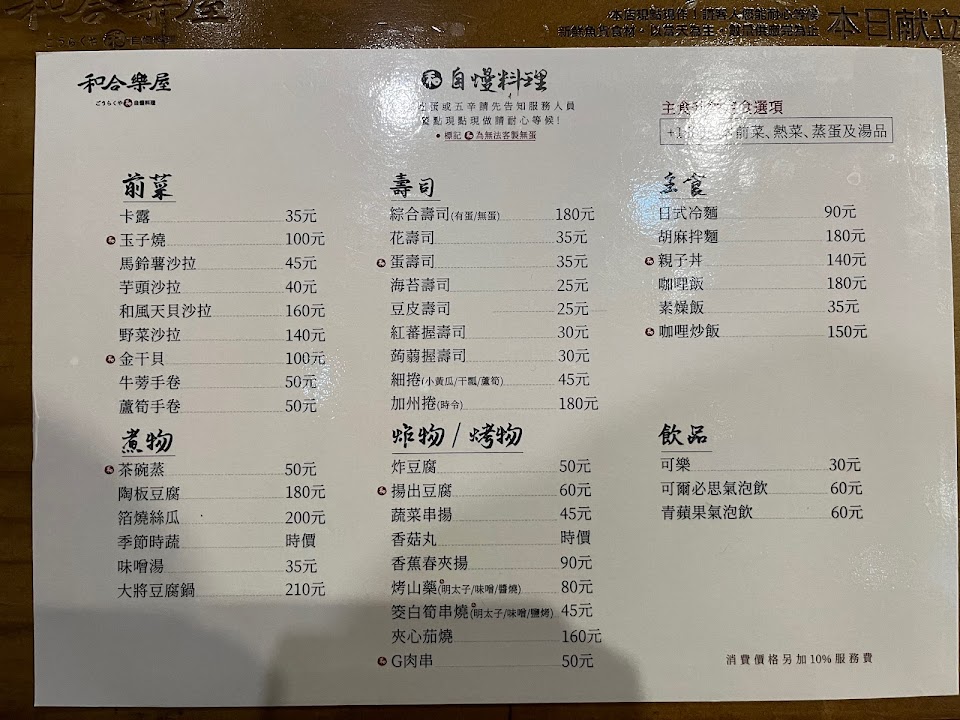 和合樂屋
本店現點現作！請客人您能耐心等候
本日献立
和合樂屋
ごうらくや 和 自慢料理
和 自慢料理
蛋或五辛請先告知服務人員
點現點現做請耐心等候！
• 標記 和 為無法客製無蛋
主食
食選項
前菜、熱菜、蒸蛋及湯品
前菜
卡露 35元
玉子燒 100元
馬鈴薯沙拉 45元
芋頭沙拉 40元
和風天貝沙拉 160元
野菜沙拉 140元
金干貝 100元
牛蒡手卷 50元
蘆筍手卷 50元
煮物
茶碗蒸 50元
陶板豆腐 180元
箔燒絲瓜 200元
季節時蔬 時價
味噌湯 35元
大將豆腐鍋 210元
壽司
綜合壽司(有蛋/無蛋) 180元
花壽司 35元
蛋壽司 35元
海苔壽司 25元
豆皮壽司 25元
紅蕃握壽司 30元
蒟蒻握壽司 30元
細捲(小黃瓜/干瓢/蘆筍) 45元
加州捲(時令) 180元
炸物/烤物
炸豆腐 50元
揚出豆腐 60元
蔬菜串揚 45元
香菇丸 時價
香蕉春夾揚 90元
烤山藥(明太子/味噌/醬燒) 80元
筊白筍串燒(明太子/味噌/鹽烤) 45元
夾心茄燒 160元
G肉串 50元
主食
日式冷麵 90元
胡麻拌麵 180元
親子丼 140元
咖哩飯 180元
素燥飯 35元
咖哩炒飯 150元
飲品
可樂 30元
可爾必思氣泡飲 60元
青蘋果氣泡飲 60元
消費價格另加10%服務費